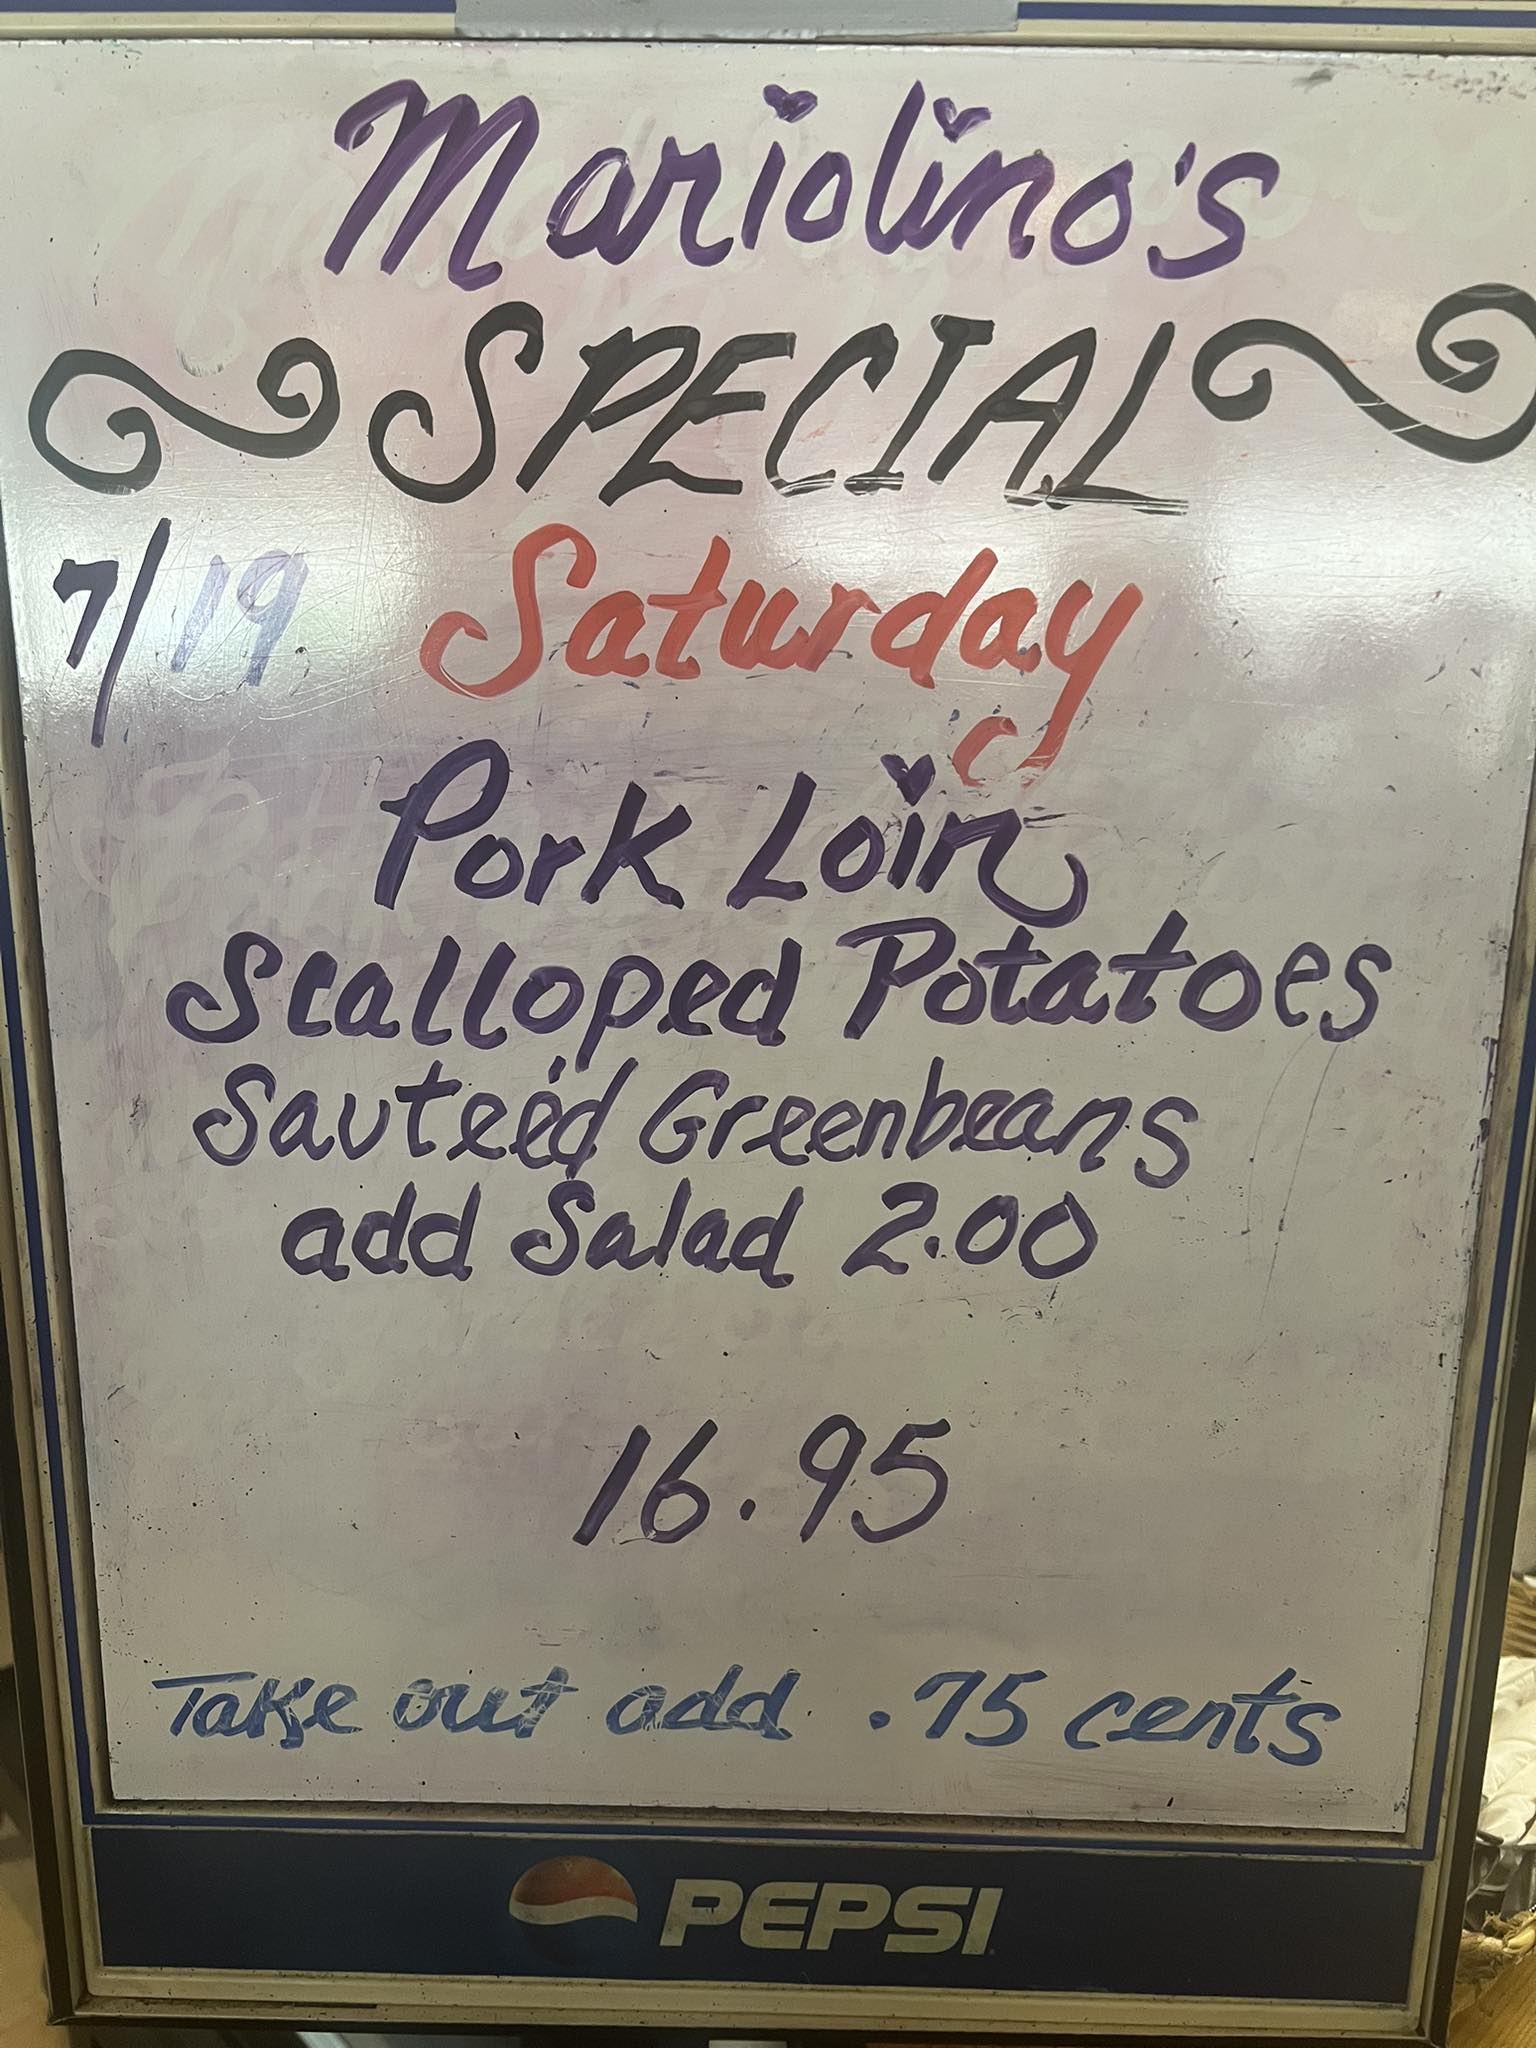 Mariolino's
SPECIAL
7/19 Saturday
Pork Loin
Scalloped Potatoes
Sauteéd Greenbeans
add Salad 2.00
16.95
Take out add .75 cents
PEPSI